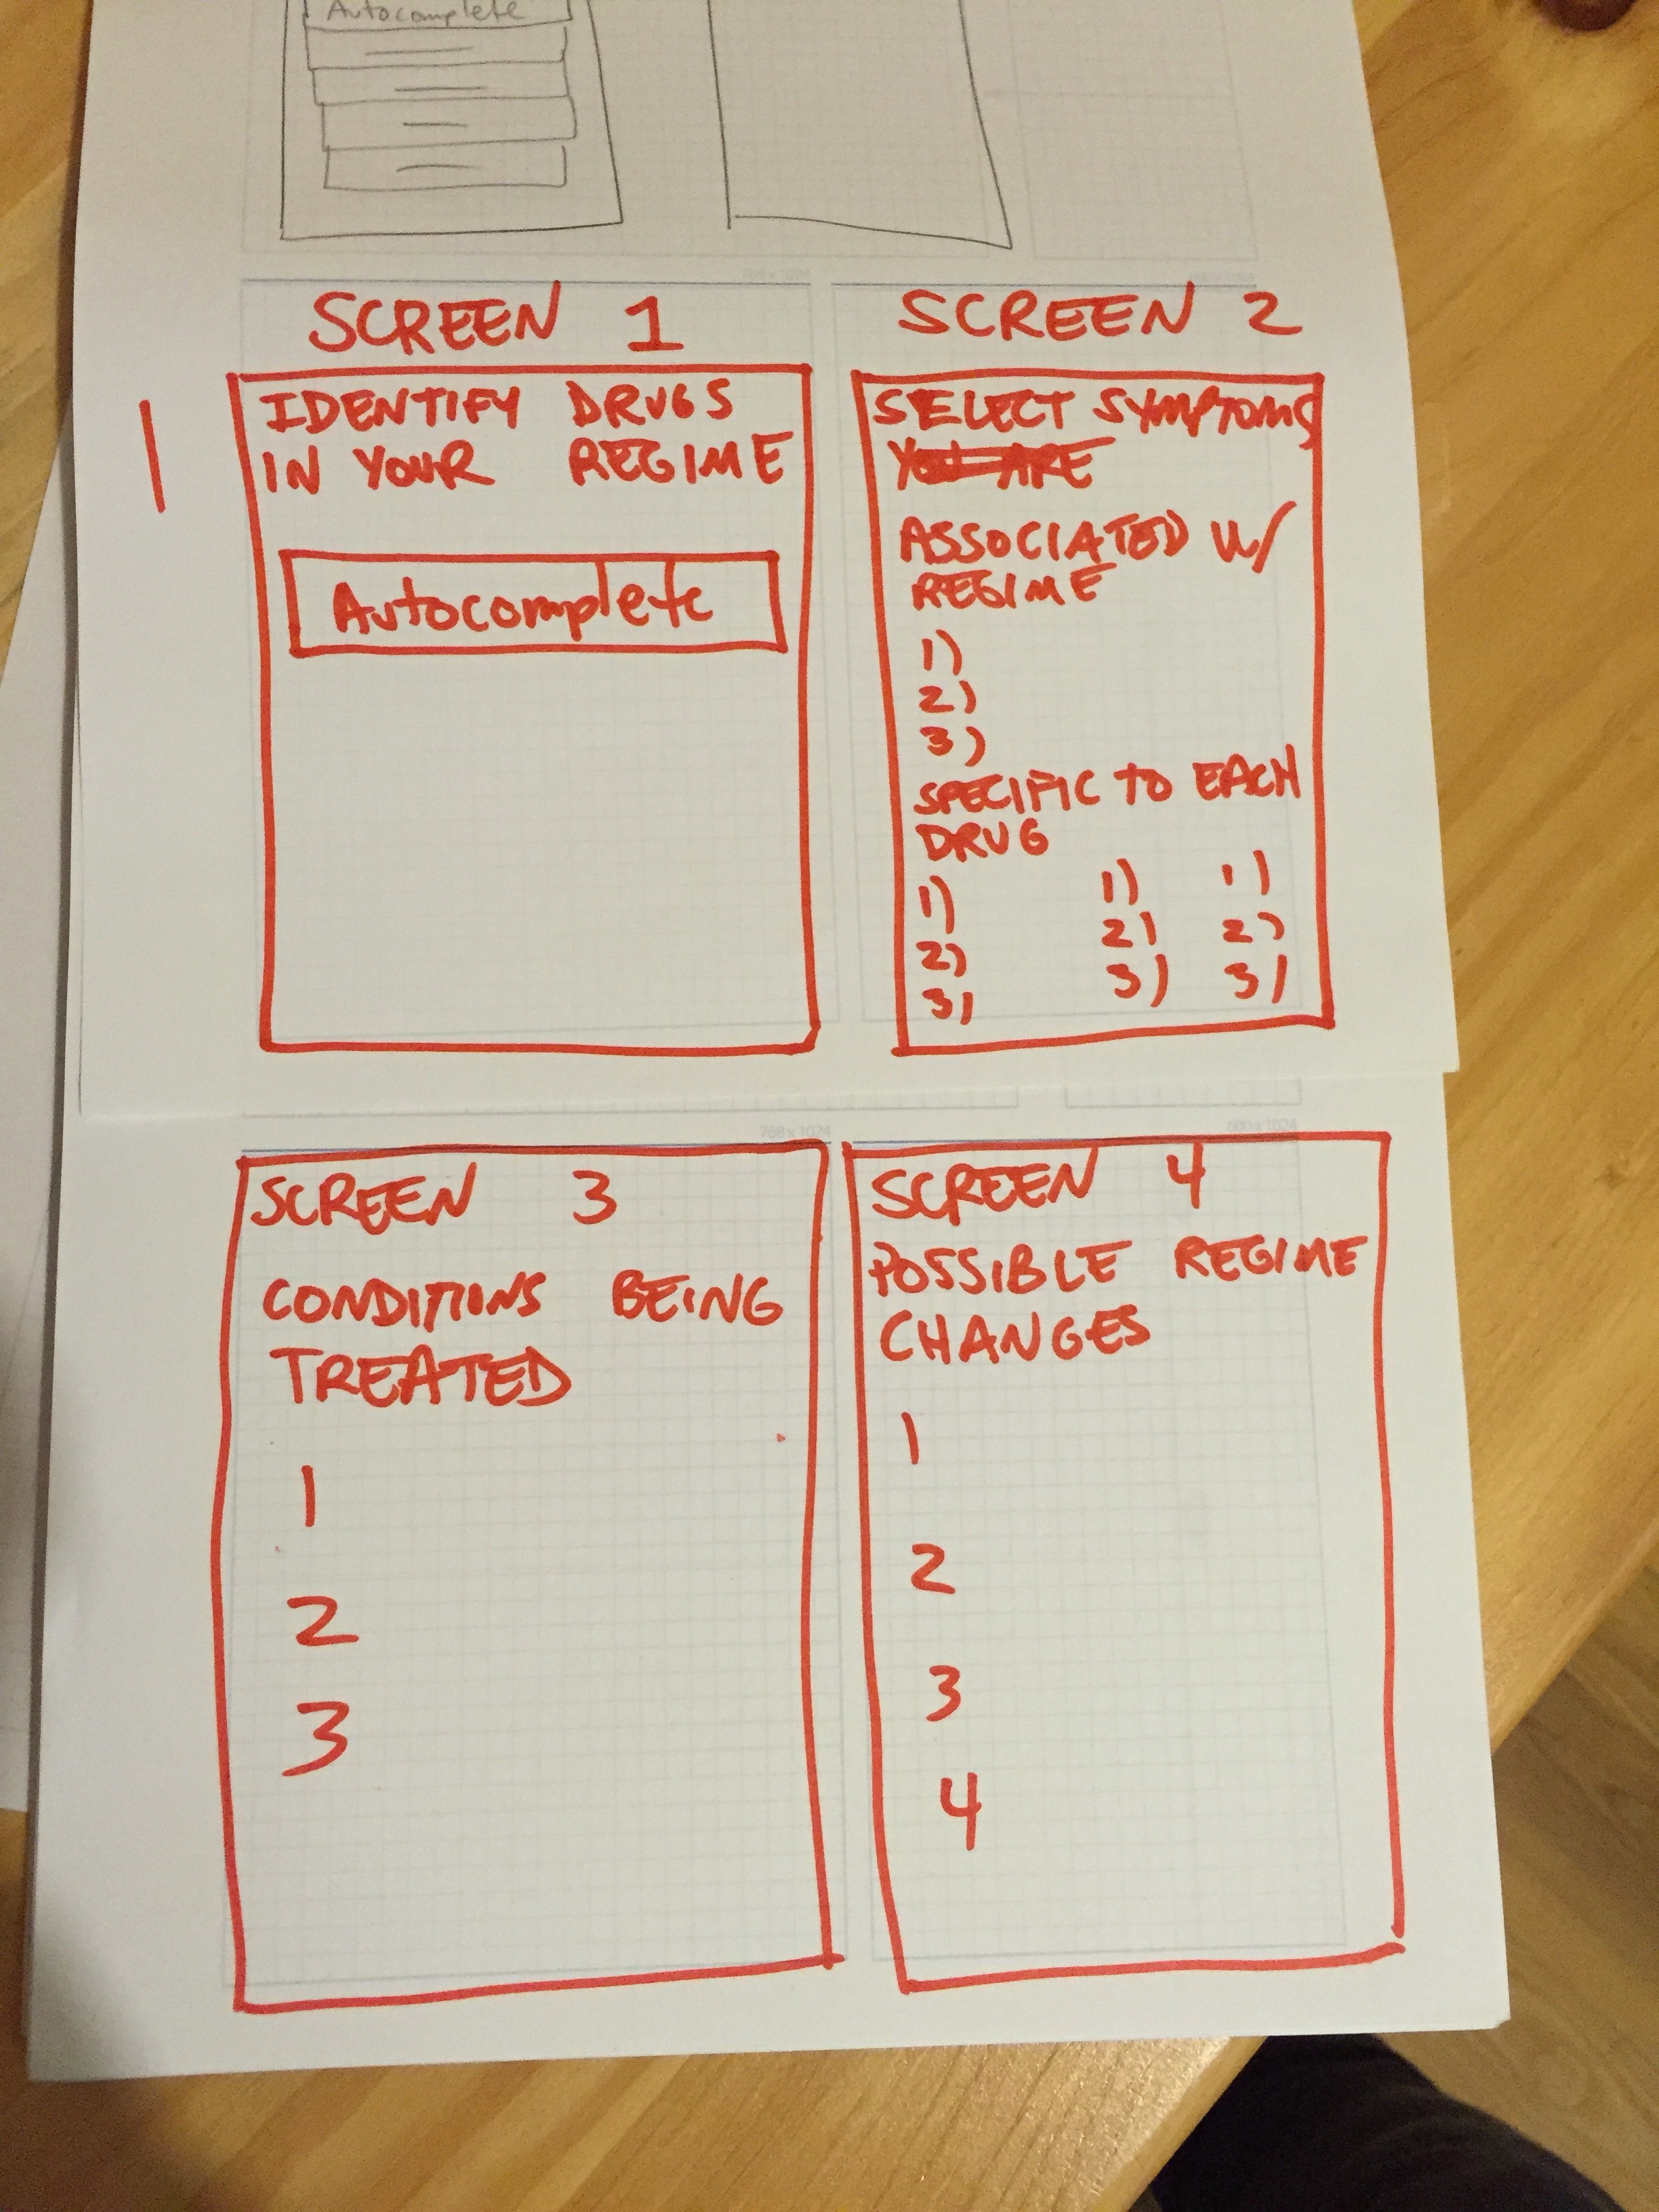 Autocomplete
768 x 1024
SCREEN 1
SCREEN 2
IDENTIFY DRUGS
IN YOUR REGIME
Autocomplete
SELECT SYMPTOMS
YOU ARE
ASSOCIATED W/
REGIME
1)
2)
3)
SPECIFIC TO EACH
DRUG
1) 1) 1)
2) 2) 2)
3) 3) 3)
768 x 1024
600 x 1024
SCREEN 3
CONDITIONS BEING
TREATED
1
2
3
SCREEN 4
POSSIBLE REGIME
CHANGES
1
2
3
4